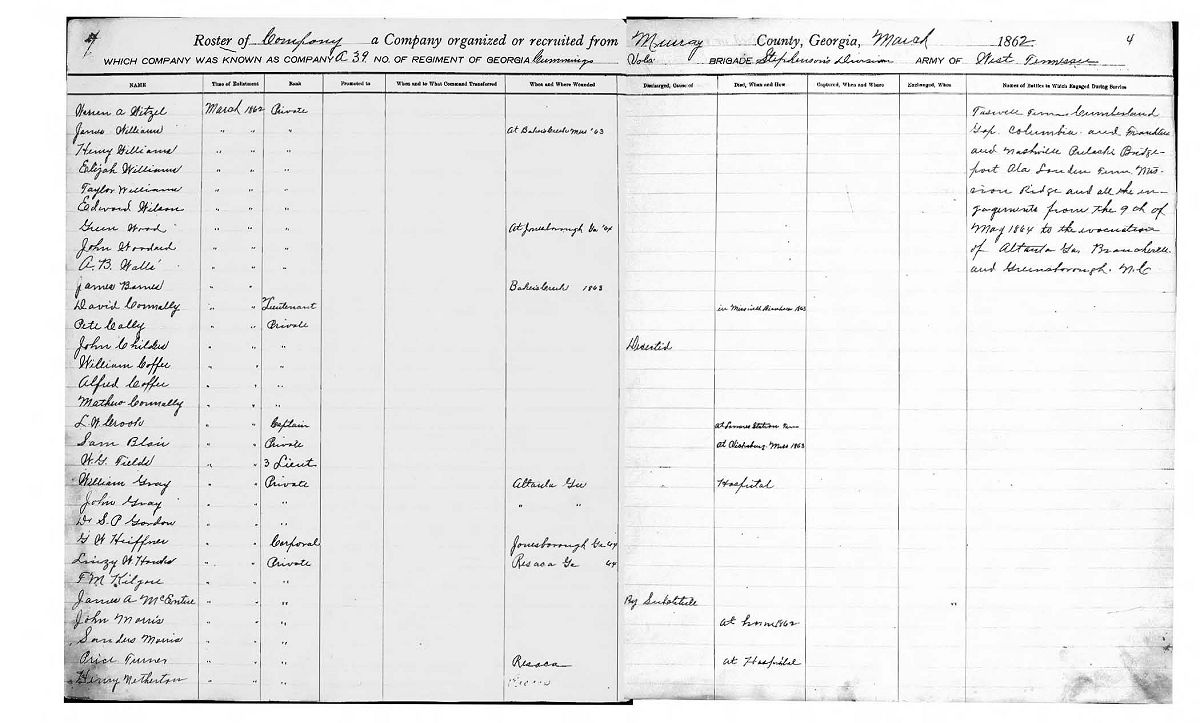 Roster of Company a Company organized or recruited from Murray County, Georgia, March 1862 4
WHICH COMPANY WAS KNOWN AS COMPANY A 39 NO. OF REGIMENT OF GEORGIA Cummings Vols BRIGADE Stephenson's Division ARMY OF West Tennessee
NAME Time of Enlistment Rank Promoted to When and to What Command Transferred When and Where Wounded Discharged, Cause of Died, When and How Captured, When and Where Exchanged, When Names of Battles in Which Engaged During Service
Warren A Witzel March 1862 Private Taswell Tenn Cumberland
James Williams " " " At Bakers Creek Miss '63 Gap. Columbia and Franklin
Henry Williams " " " and Nashville Pulaski Bridge-
Elijah Williams " " " port Ala Louden Tenn. Mis-
Taylor Williams " " " sion Ridge and all the en-
Edward Wilson " " " gagements from the 9th of
Green Wood " " " At Jonesborough Ga '64 May 1864 to the evacuation
John Woodard " " " of Altanta Ga.
A. B. Walls " " " and Greensborough N.C
James Barnes " " Bakers Creek 1863
David Connally " " 2nd Lieutenant in 1863
Pete Cally " " Private
John Childers " " " Desertid
William Coffee " " "
Alfred Coffee " " "
Mathew Connally " " "
L. W Crook " " Captain at Station Tenn
Sam Blair " " Private at Vicksburg Miss 1863
W. G. Fields " " 3 Lieut
William Gray " " Private Altanta Ga Hospital
John Gray " " " " "
Dr S. P Gordon " " "
G W Heiffner " " Corporal Jonesborough Ga 64
Linzy W Hawks " " Private Resaca Ga 64
F M Kilgore " " "
James A McEntire " " " By Substitute "
John Morris " " " at home 1862
Sanders Morris " " "
Price Turner " " " Resaca at Hospital
Henry Netherton " " "